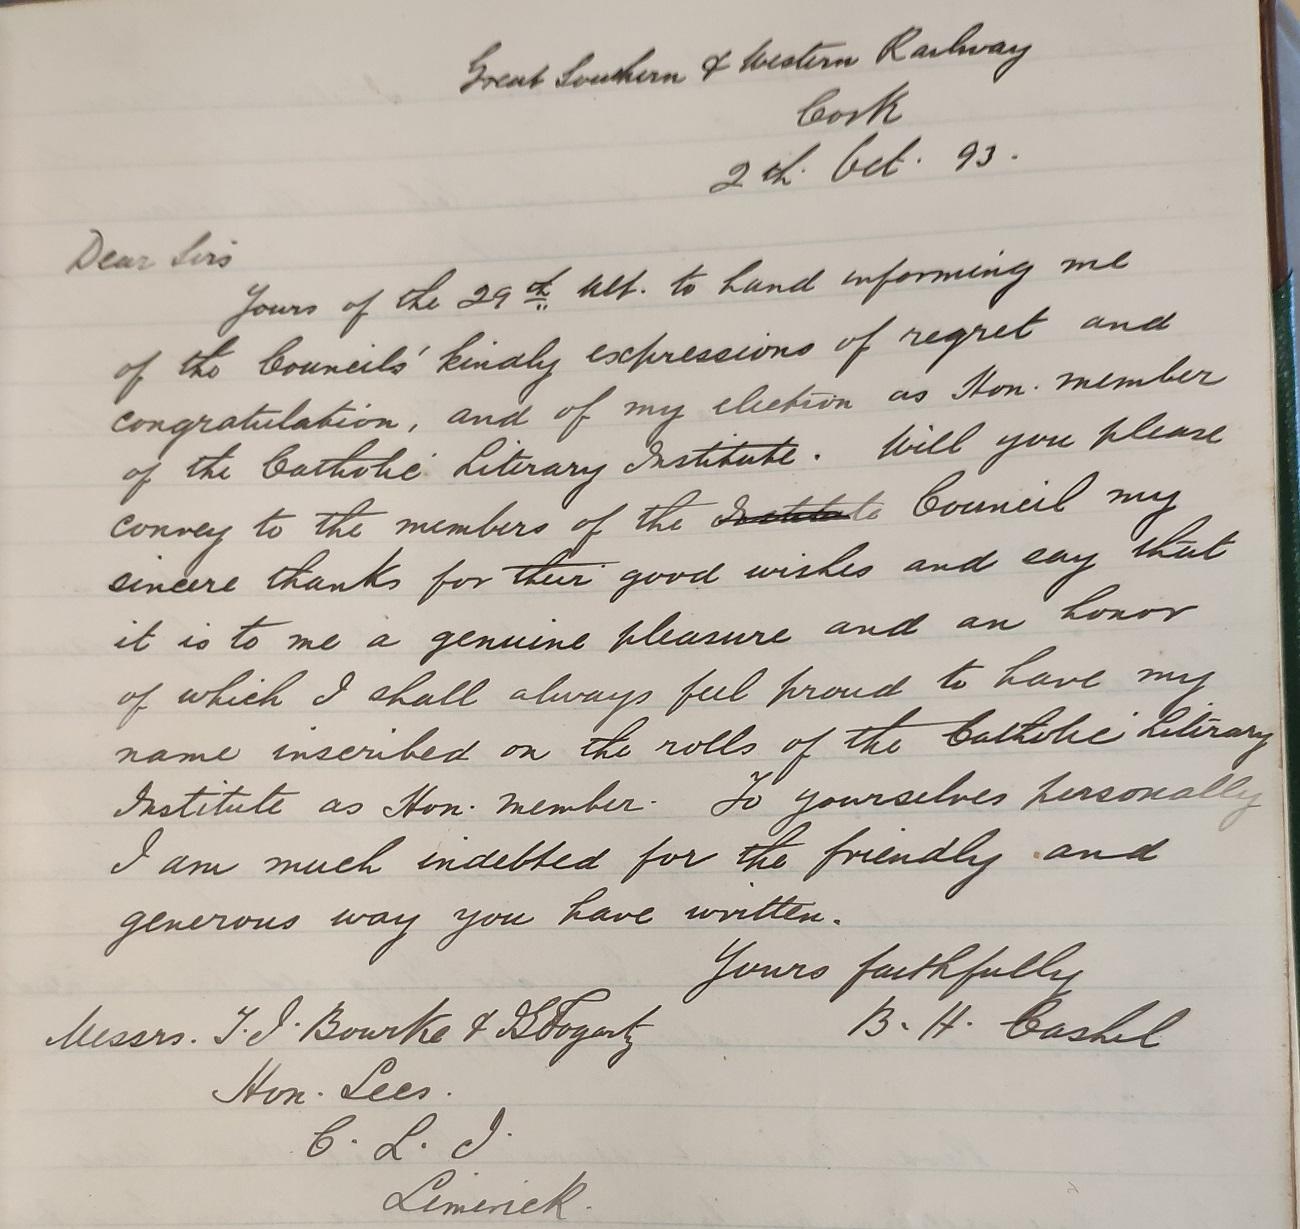 Great Southern & Western Railway
Cork
2th. Oct. 93.
Dear Sirs
Yours of the 29th ult. to hand informing me
of the Councils' kindly expressions of regret and
congratulation, and of my election as Hon. member
of the Catholic Literary Institute. Will you please
convey to the members of the Institute Council my
sincere thanks for their good wishes and say that
it is to me a genuine pleasure and an honor
of which I shall always feel proud to have my
name inscribed on the rolls of the Catholic Literary
Institute as Hon. member. To yourselves personally
I am much indebted for the friendly and
generous way you have written.
Yours faithfully
B. H. Cashel
Messrs. T. J. Bourke & Fogarty
Hon. Secs.
C. L. I.
Limerick.